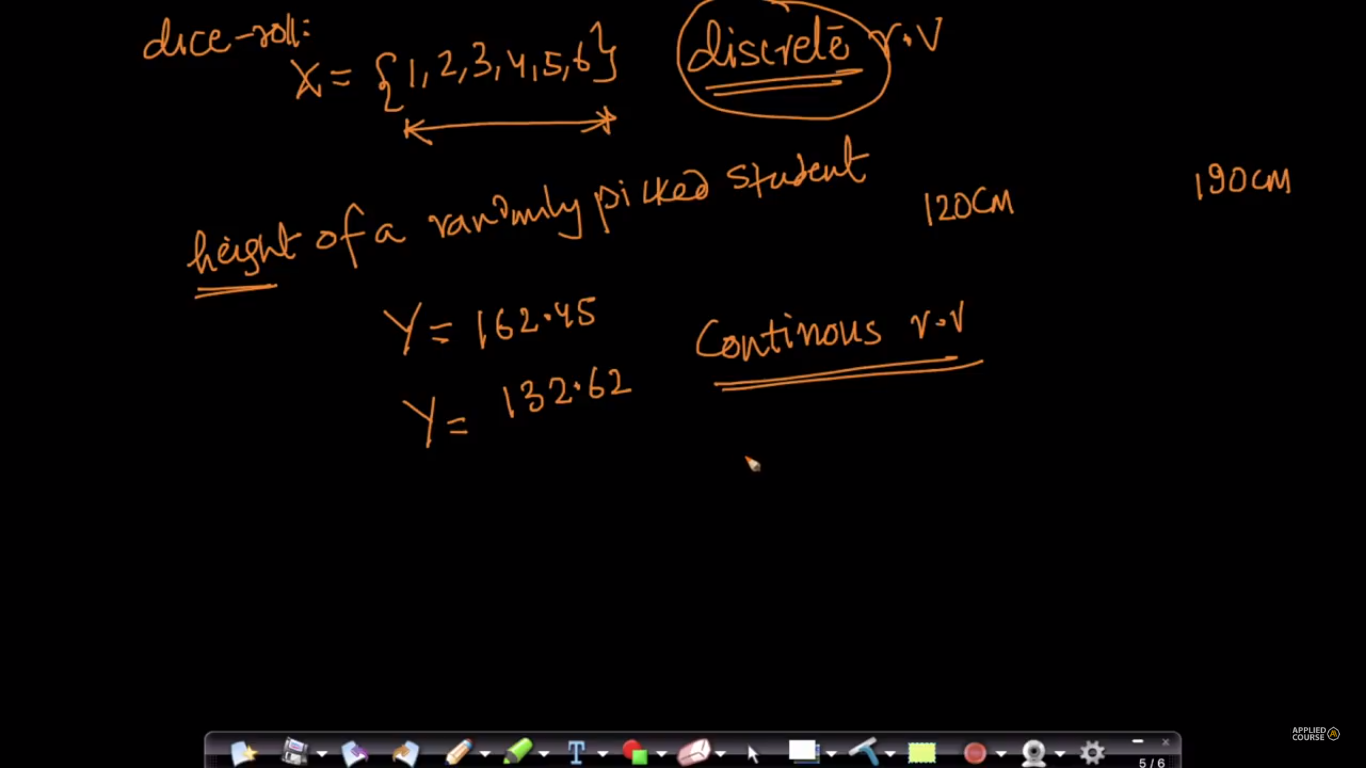 dice-roll:
X = {1,2,3,4,5,6} discrete r.v
height of a randomly picked student 120CM 190CM
Y = 162.45 Continous r.v
Y = 132.62
T
5 / 6
APPLIED
COURSE